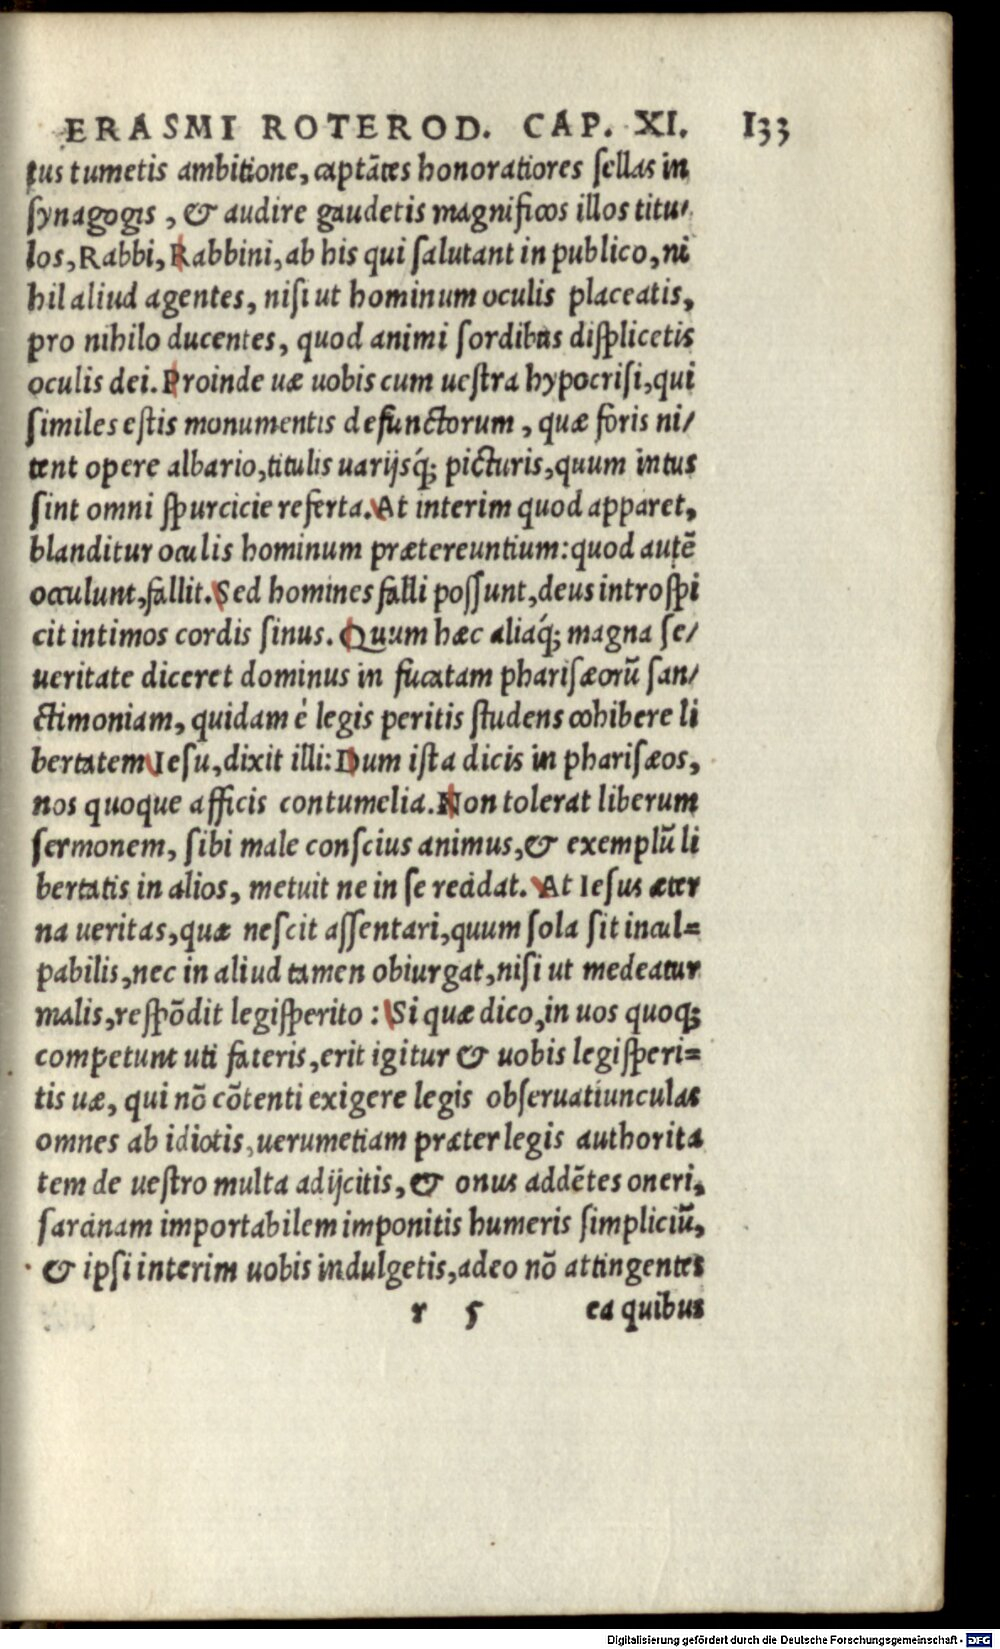 ERASMI ROTEROD. CAP. XI. 133
tus tumetis ambitione, captãtes honoratiores ſellas in
ſynagogis, & audire gaudetis magnificos illos titu⸗
los, Rabbi, Rabbini, ab his qui ſalutant in publico, ni
hil aliud agentes, niſi ut hominum oculis placeatis,
pro nihilo ducentes, quod animi ſordibus diſplicetis
oculis dei. Proinde uæ uobis cum ueſtra hypocriſi, qui
ſimiles eſtis monumentis defunctorum, quæ foris ni⸗
tent opere albario, titulis uarijsq́; picturis, quum intus
ſint omni ſpurcicie referta. At interim quod apparet,
blanditur oculis hominum prætereuntium: quod autẽ
occulunt, fallit. Sed homines falli poſſunt, deus introſpi
cit intimos cordis ſinus. Quum hæc aliaq́; magna ſe⸗
ueritate diceret dominus in fucatam phariſæorũ ſan⸗
ctimoniam, quidam è legis peritis ſtudens cohibere li
bertatem Ieſu, dixit illi: Dum iſta dicis in phariſæos,
nos quoque afficis contumelia. Non tolerat liberum
ſermonem, ſibi male conſcius animus, & exemplũ li
bertatis in alios, metuit ne in ſe recidat. At Ieſus æter
na ueritas, quæ neſcit aſſentari, quum ſola ſit incul=
pabilis, nec in aliud tamen obiurgat, niſi ut medeatur
malis, reſpõdit legiſperito: Si quæ dico, in uos quoq;
competunt uti fateris, erit igitur & uobis legiſperi=
tis uæ, qui nõ cõtenti exigere legis obſeruatiunculas
omnes ab idiotis, uerumetiam præter legis authorita
tem de ueſtro multa adijcitis, & onus addẽtes oneri,
ſarcinam importabilem imponitis humeris ſimpliciũ,
& ipſi interim uobis indulgetis, adeo nõ attingentes
r 5 ea quibus
Digitalisierung gefördert durch die Deutsche Forschungsgemeinschaft - DFG